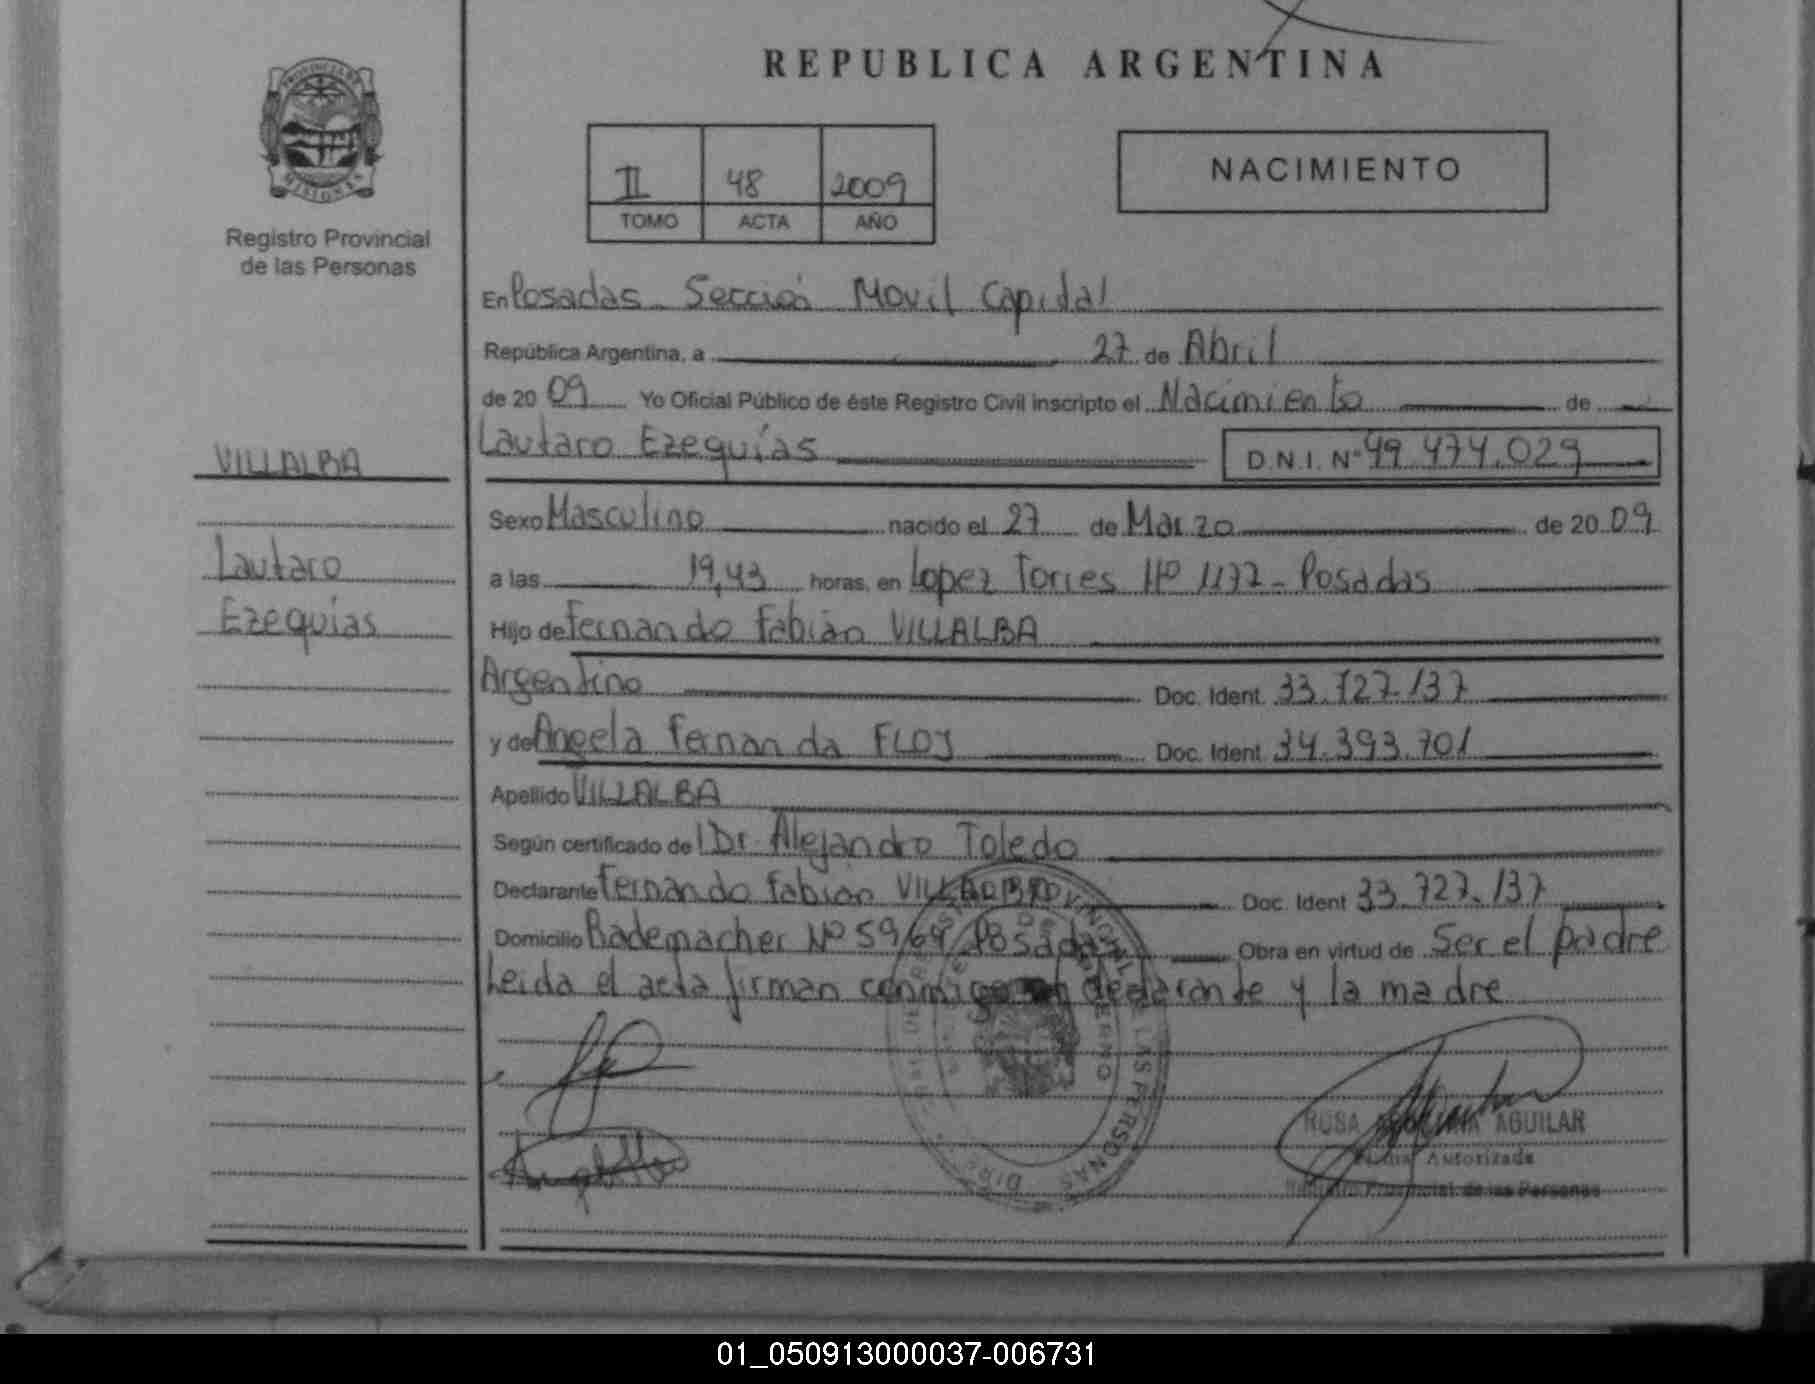 REPUBLICA ARGENTINA
PROVINCIA DE
MISIONES
Registro Provincial
de las Personas
II 48 2009
TOMO ACTA AÑO
NACIMIENTO
En Posadas Sección Movil Capital
República Argentina, a 27 de Abril
de 20 09 Yo Oficial Público de éste Registro Civil inscripto el Nacimiento de
Lautaro Ezequías D.N.I. Nº 49.474.029
VILLALBA
Lautaro
Ezequías
Sexo Masculino nacido el 27 de Marzo de 20 09
a las 19,43 horas, en Lopez Torres Nº 1177 - Posadas
Hijo de Fernando Fabián VILLALBA
Argentino Doc. Ident. 33.727.137
y de Angela Fernanda FLOJ Doc. Ident. 34.393.701
Apellido VILLALBA
Según certificado del Dr. Alejandro Toledo
Declarante Fernando Fabián VILLALBA Doc. Ident 33.727.137
Domicilio Rademacher Nº 5964 Posadas Obra en virtud de Ser el padre
Leida el acta firman conmigo declarante y la madre
ROSA AGUILAR
Firma Autorizada
Registro Provincial de las Personas
01_050913000037-006731